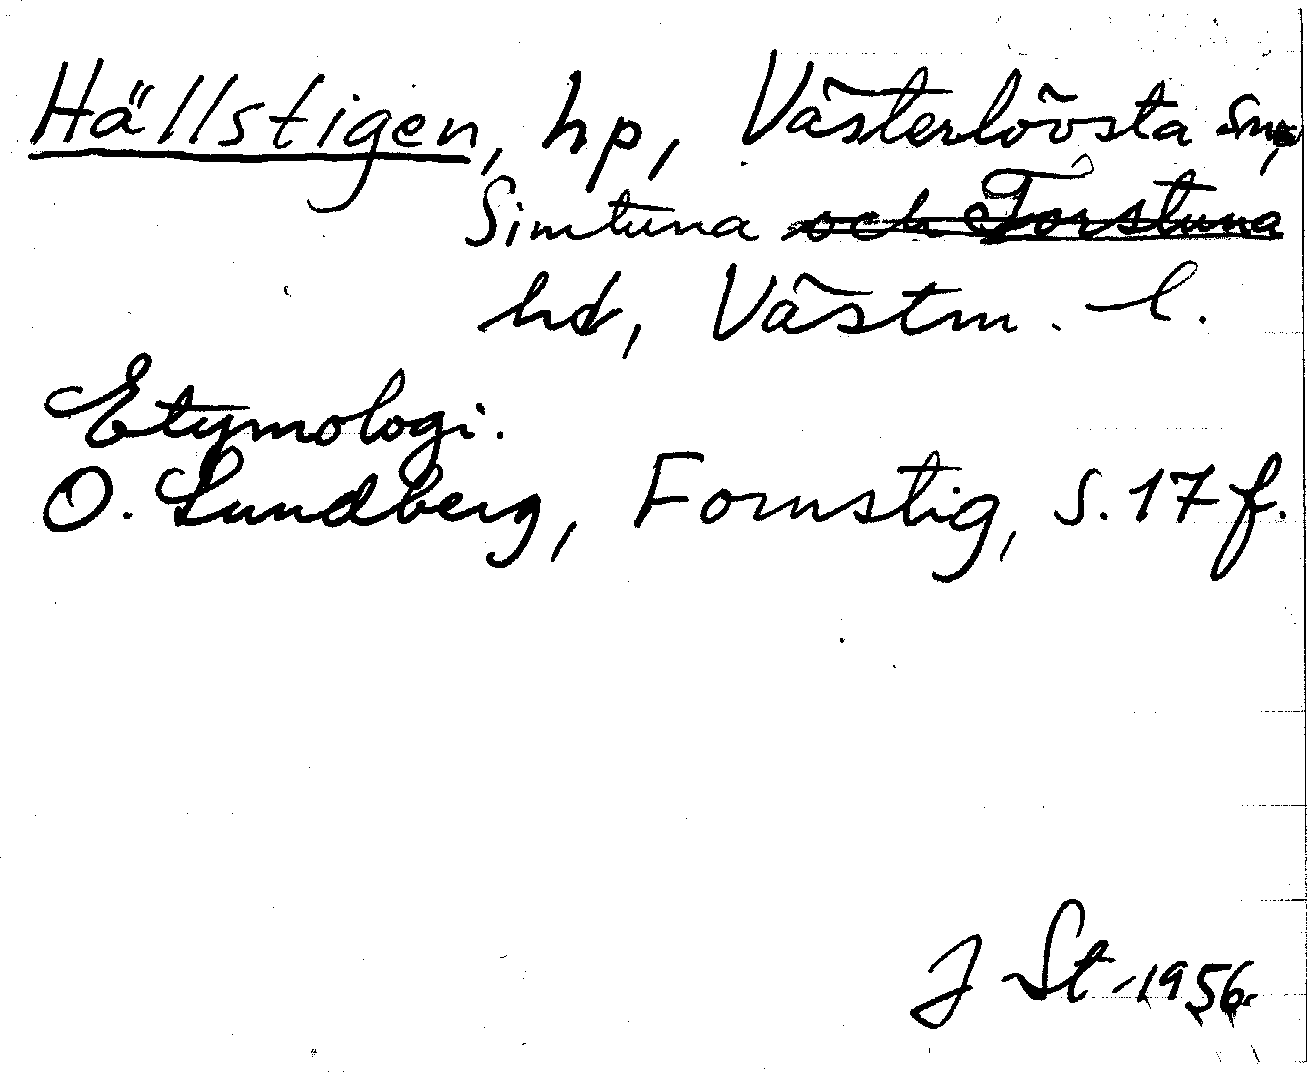 Hällstigen, hp, Västerlövsta sn,
Simtuna och Torstuna
hd, Västm. l.
Etymologi.
O. Lundberg, Fornstig, S. 17 f.
J St 1956.